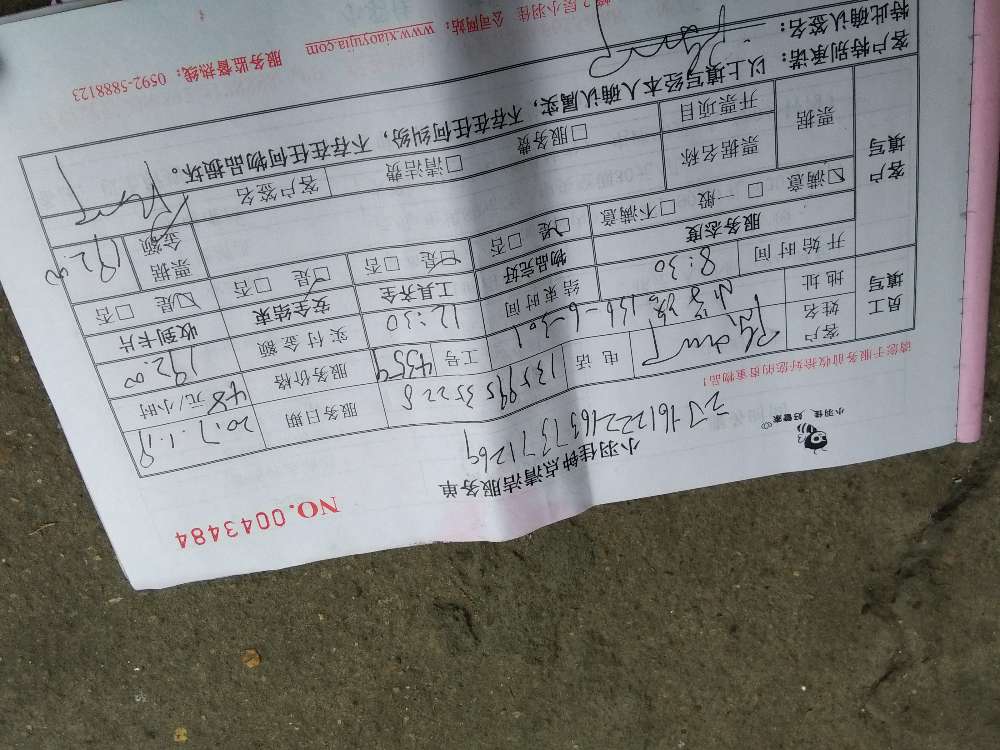 NO.0043484
小羽佳钟点清洁服务单
小羽佳 好管家
请您于服务前收拾好您的贵重物品！
员工填写
客户姓名 电话 服务日期 2017.1.19
地址 工号 4359 服务价格 48 元/小时
开始时间 8:30 结束时间 12:30 实付金额 192.00
客户填写
服务态度 物品完好 工具齐全 安全结束 收到卡片
☑满意 □一般 □不满意 ☑是 □否 ☑是 □否 ☑是 □否 ☑是 □否
票据 票据名称 票据金额 192.00
开票项目 □服务费 □清洁费 客户签名
客户特别承诺：以上填写经本人确认属实，不存在任何纠纷，不存在任何物品损坏。
特此确认签名：
层小羽佳 公司网站：www.xiaoyujia.com 服务监督热线：0592-5888123